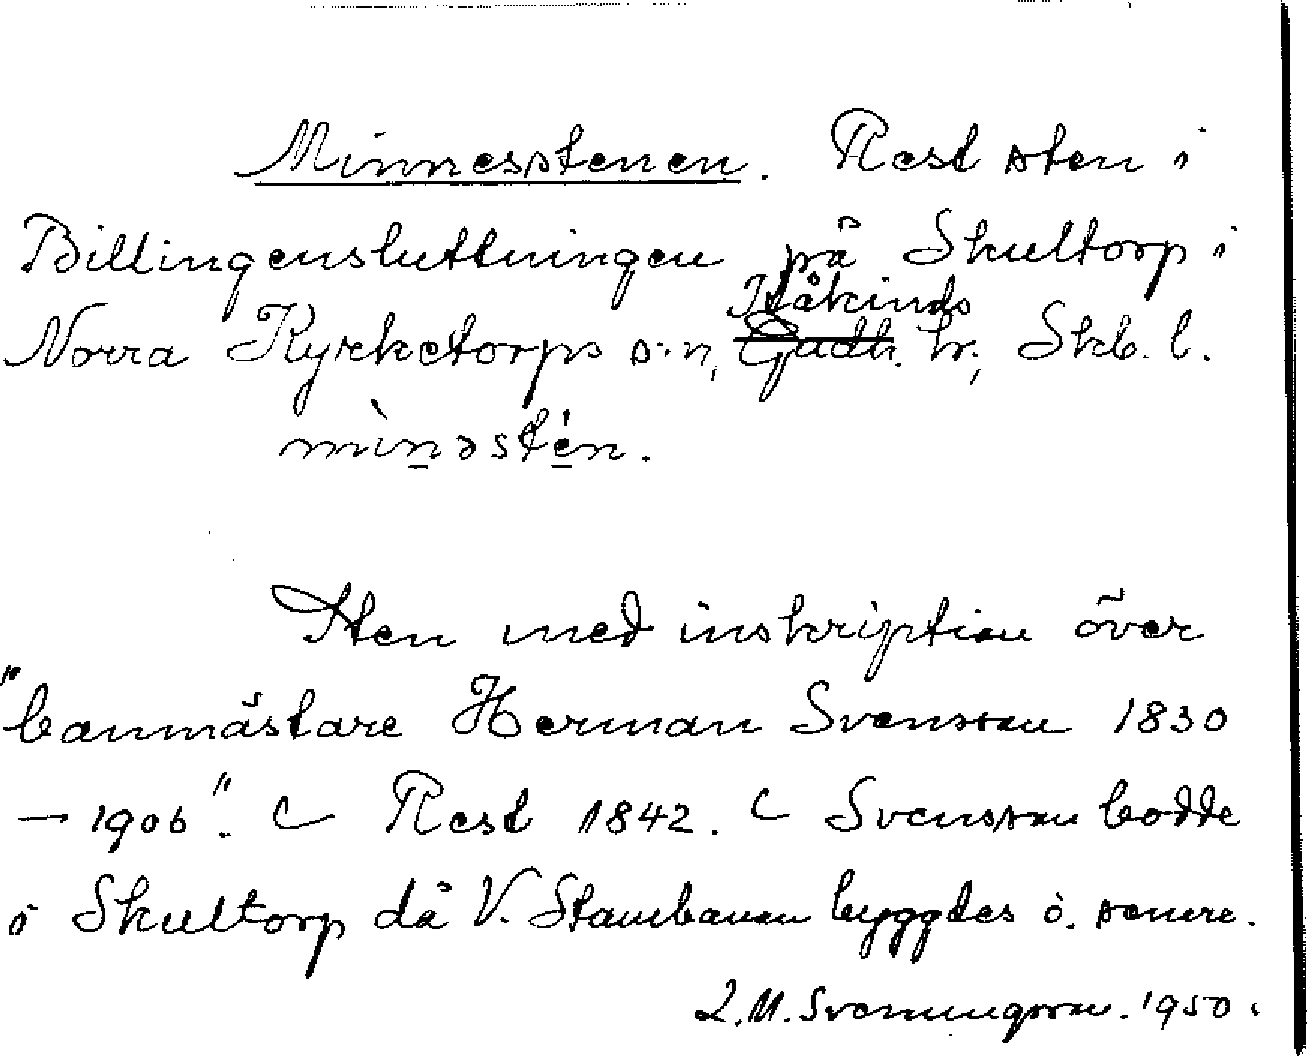 Minnesstenen. Rest sten i
Billingensluttningen på Skultorp i
Kåkinds
Norra Kyrketorps s:n, Gudh. hr, Skb. l.
mìnəstén.
Sten med inskription över
"banmästare Herman Svensson 1830
— 1906". Rest 1842. Svensson bodde
i Skultorp då V. Stambanan byggdes o. senare.
L.M. Svenungsson. 1950.